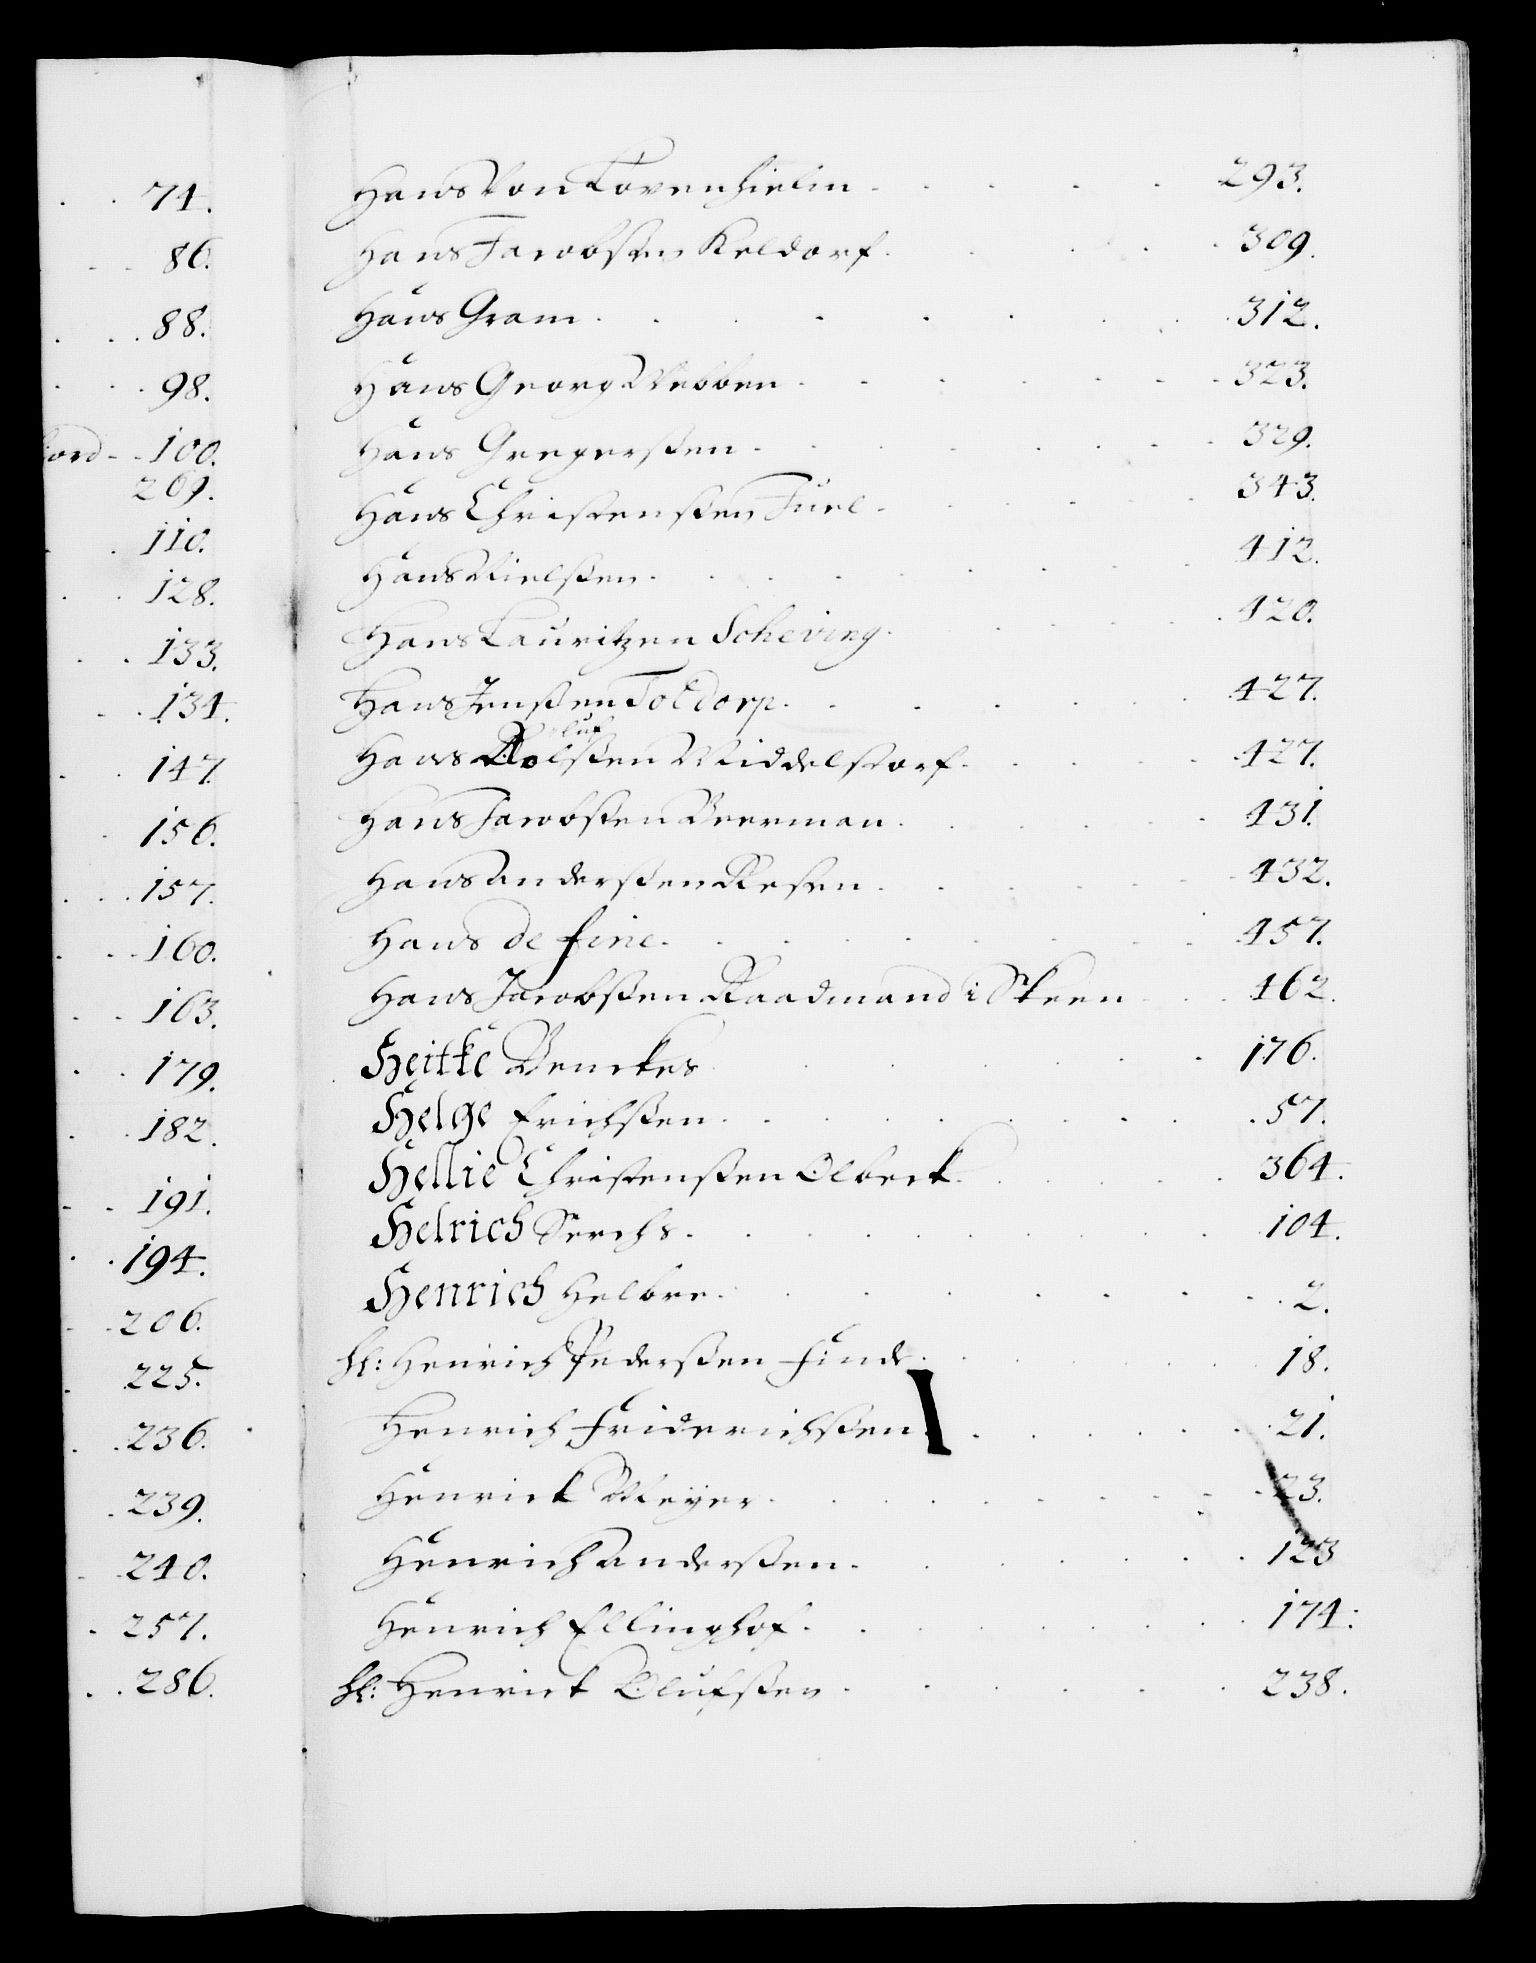 74.
86.
88.
98.
iord - - 100.
269.
110.
128.
133.
134.
147.
156.
157.
160.
163.
179.
182.
191.
194.
206.
225.
236.
239.
240.
257.
286.
Hans Von Løvenhielm . . . . 293.
Hans Jacobsen Keldorf . . . . 309.
Hans Gram . . . . . . . 312.
Hans Georg Mebben . . . . . . 323.
Hans Gregerssen . . . . . . 329.
Hans Christenssen Juel . . . . 343.
Hans Nielssen . . . . . . 412.
Hans Lauritzen Scheving . . . . 420.
Hans Jenssen Toldorp . . . . . 427.
Hans Rolufssen Middelstorf . . . . 427.
Hans Jacobssen Beerman . . . . . 431.
Hans Anderssen Resen . . . . . 432.
Hans de fine . . . . . . . 457.
Hans Jacobssen Raadmand i Skeen . . 462.
Heitke Benckes . . . . . . 176.
Helge Erichssen . . . . . . 57.
Hellie Christenssen Olbeck . . . . 364.
Helrich Serchs . . . . . . 104.
Henrich Helbre . . . . . . 2.
hl: Henrich Pederssen Finde . . . . 18.
Henrich Friderichssen . . . . . 21.
Henrick Meyer . . . . . . 23.
Henrich Anderssen . . . . . . 123
Henrich Ellinghof . . . . . . 174.
hl: Henrick Olufssen . . . . . 238.